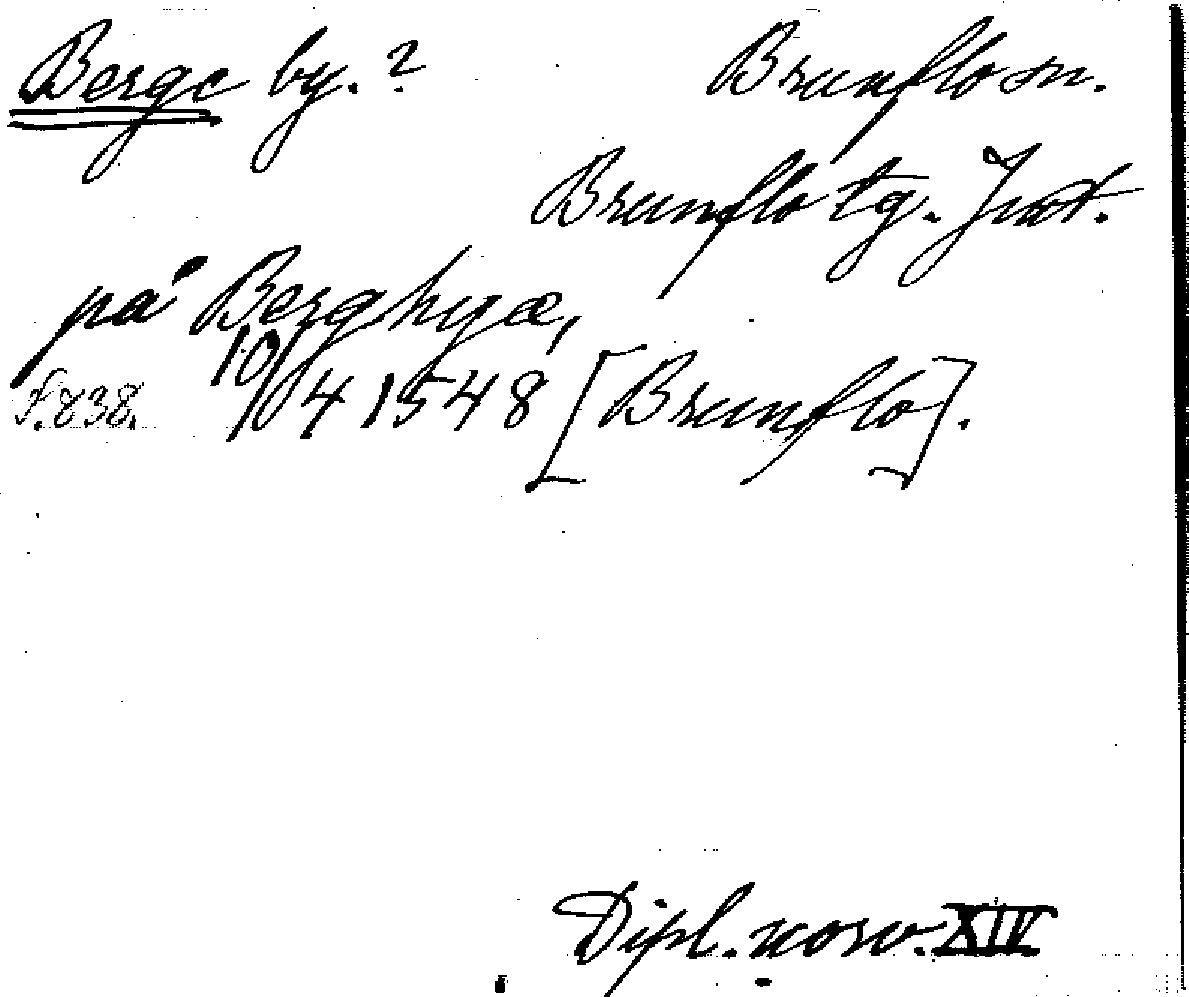 Berge by.? Brunflo sn.
Brunflo tg. Jmt.
på Berghyæ,
s. 838. 10/4 1548 [Brunflo].
Dipl. norv. XIV